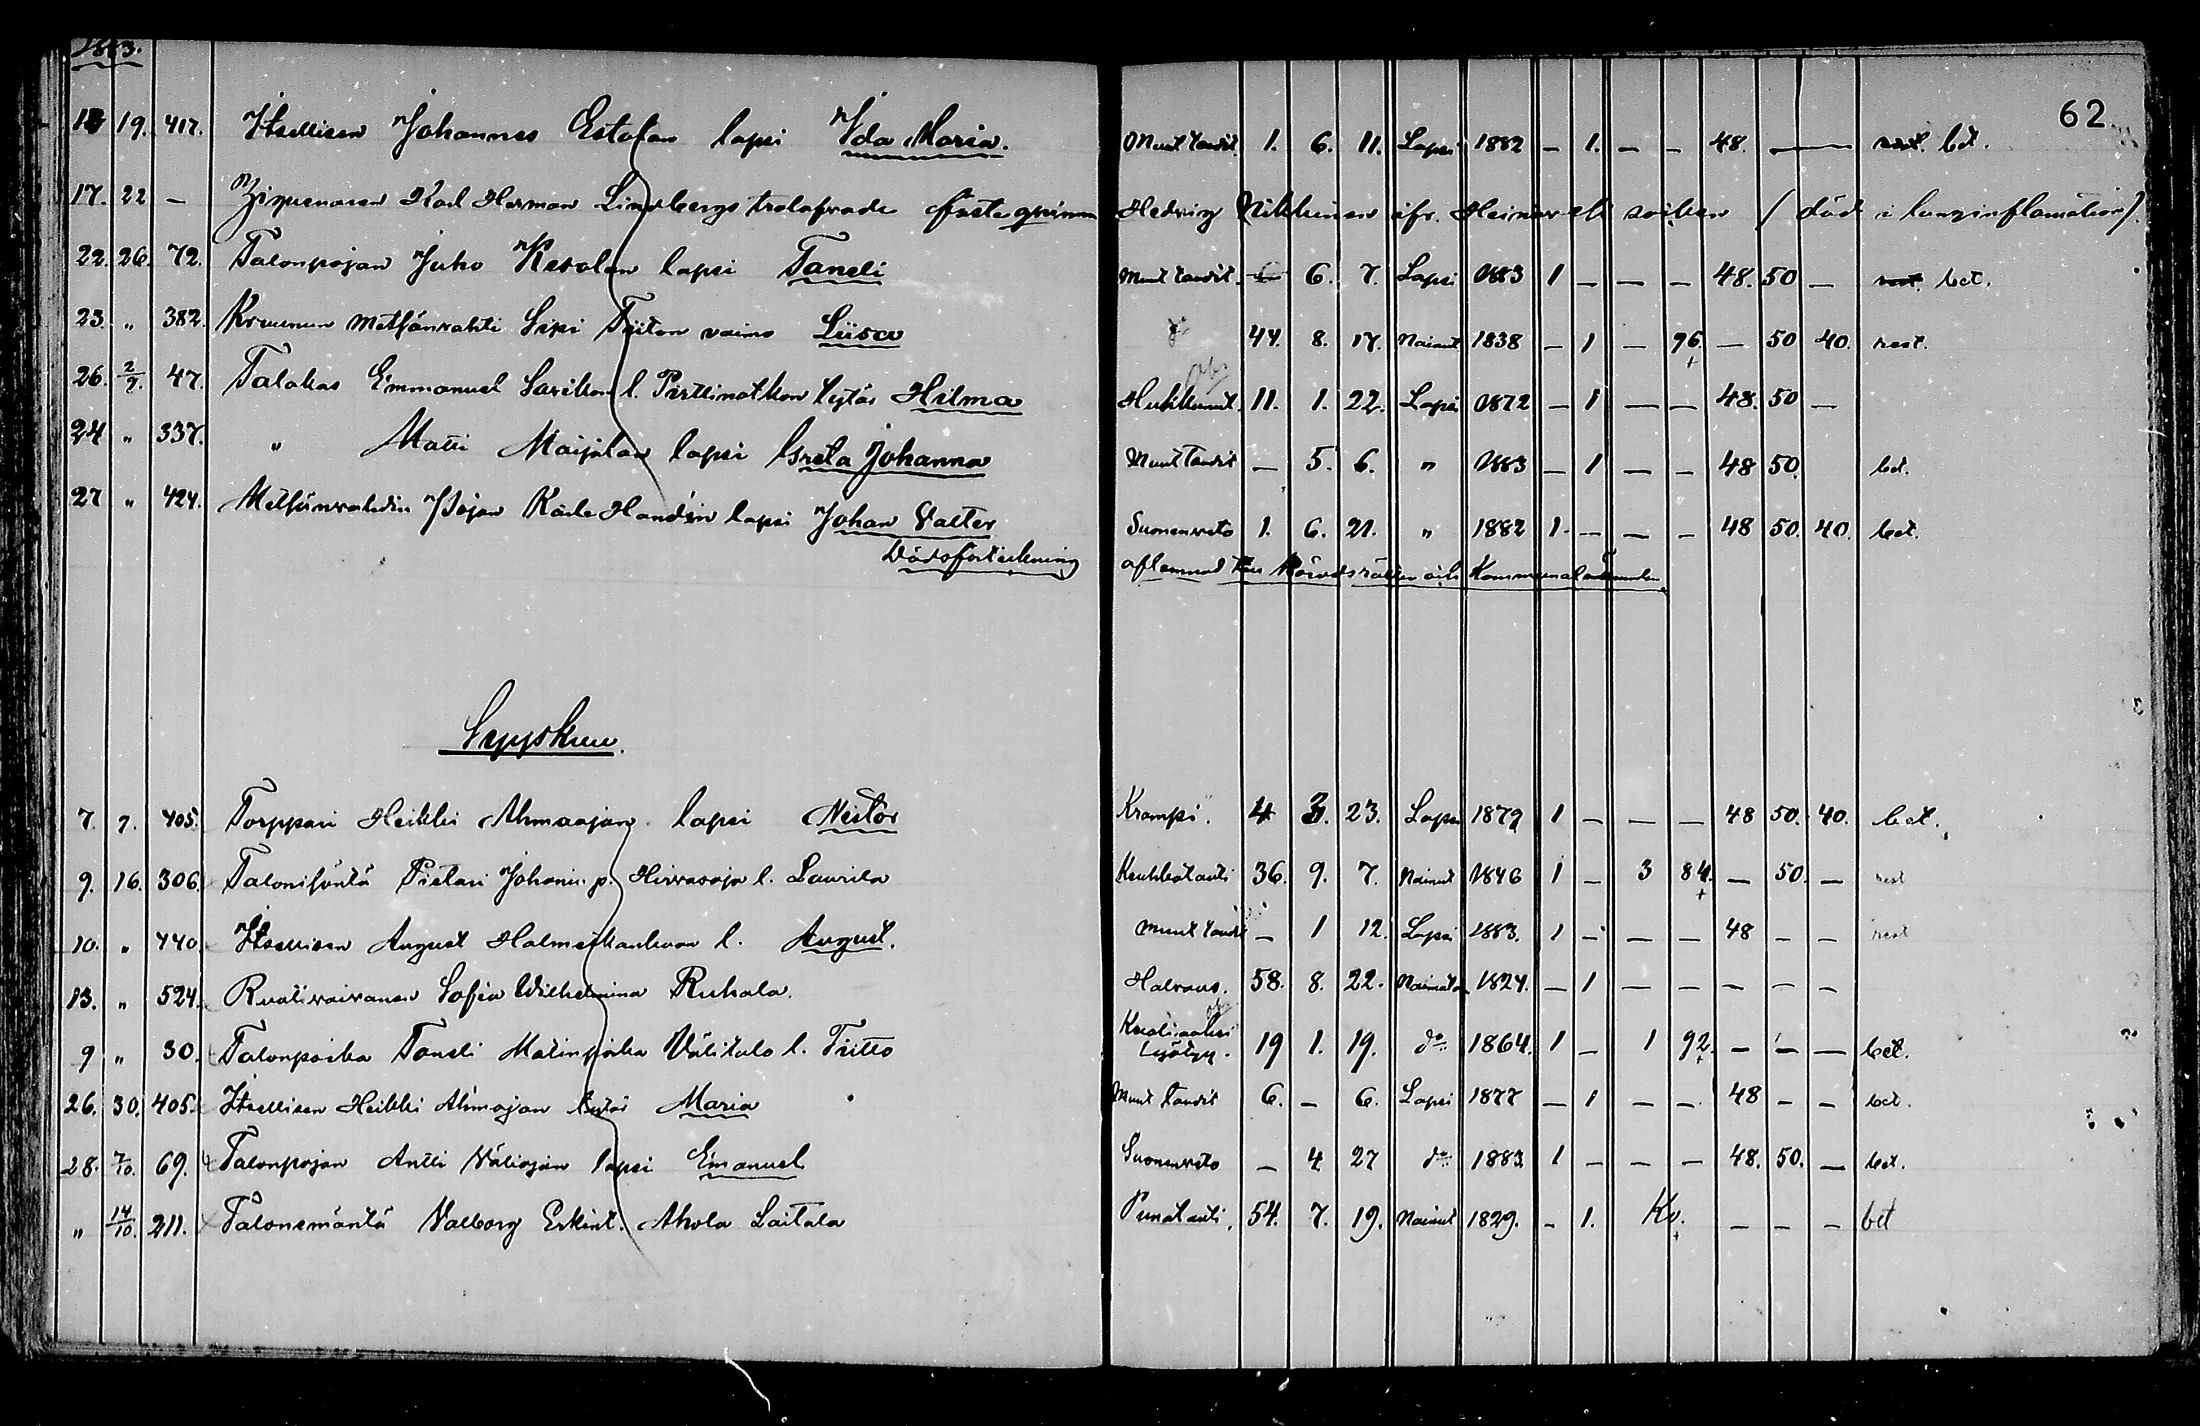 1883.
62
18 19. 417. Itsellisen Johannes Estolan lapsi Ida Maria. Muut taudit. 1. 6. 11. Lapsi 1882 — 1. — — 48. — bet.
17. 22 — Karl Herman Lindbergs trolofvade fästeqvinna Hedvig ifr. Heinävesi socken (död i lunginflamation).
22. 26. 72. Talonpojan Juho Keralan lapsi Taneli Muut taudit. — 6. 7. Lapsi 1883 1 — — — 48. 50 — rest. bet.
23. " 382. Kruunun metsänvahti Sipi Tiiton vaimo Liisa 44. 8. 17. Nainut 1838 — 1 — 96 — 50 40. rest.
26. 2/9. 47. Talokas Emmanuel l. tytär Hilma 11. 1. 22. Lapsi 1872 — 1 — — 48. 50 —
24 " 337. " Matti Maijalan lapsi Greta Johanna Muut taudit — 5. 6. " 1883 — 1 — — 48 50. bet.
27 " 424. Metsänvahdin Kalle lapsi Johan Valter Suonenveto 1. 6. 21. " 1882 1. — — — 48 50. 40. bet.
Dödsförteckning aflemnad Häradsrätten och Kommunalnämnden.
Syyskuu.
7. 9. 405. Torppari Heikki Ahmaojan lapsi Nestor Krampi. 4 3. 23. Lapsi 1879 1 — — — 48 50. 40. bet.
9. 16. 306. Talonisäntä Pietari Johanin p. Hirvasoja l. Laurila Keuhkotauti 36. 9. 7. Nainut 1846 1 — 3 84. — 50. — rest
10. " 440. Itsellisen August l. August. Muut taudit — 1 12. Lapsi 1883. 1 — — — 48 — — rest
13. " 524. Ruotivaivanen Sofia Wilhelmina Ruhala. Halvaus. 58. 8. 22. Naimaton 1824. — 1 — — — — —
9 " 30. Talonpoika Taneli Matinpoika Välitalo l. Tiitto 19 1. 19. do 1864. 1 — 1 92. — — — bet.
26. 30. 405. Itsellisen Heikki Ahmaojan tytär Maria Muut taudit 6. — 6. Lapsi 1877 — 1 — — 48 — — bet.
28. 7/10. 69. Talonpojan Antti Väliojan lapsi Emanuel Suonenveto — 4 27 do 1883 1 — — — 48. 50. — bet.
" 14/10. 211. Talonemäntä Valborg Erkint. Ahola Laitala Punatauti. 54. 7. 19. Nainut 1829. — 1. Kv. — — — bet